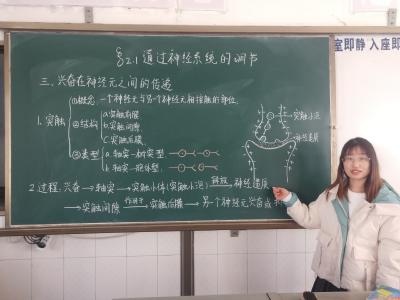 室即静 入座即
§2.1 通过神经系统的调节
三、兴奋在神经元之间的传递
1. 突触
①概念: 一个神经元与另一个神经元相接触的部位.
②结构
a. 突触前膜
b. 突触间隙
C. 突触后膜
③类型
a. 轴突—树突型
b. 轴突—胞体型
突触小泡
神经递质
2. 过程: 兴奋→轴突→突触小体(突触小泡) 释放 神经递质
→突触间隙 作用于 突触后膜→另一个神经元兴奋或